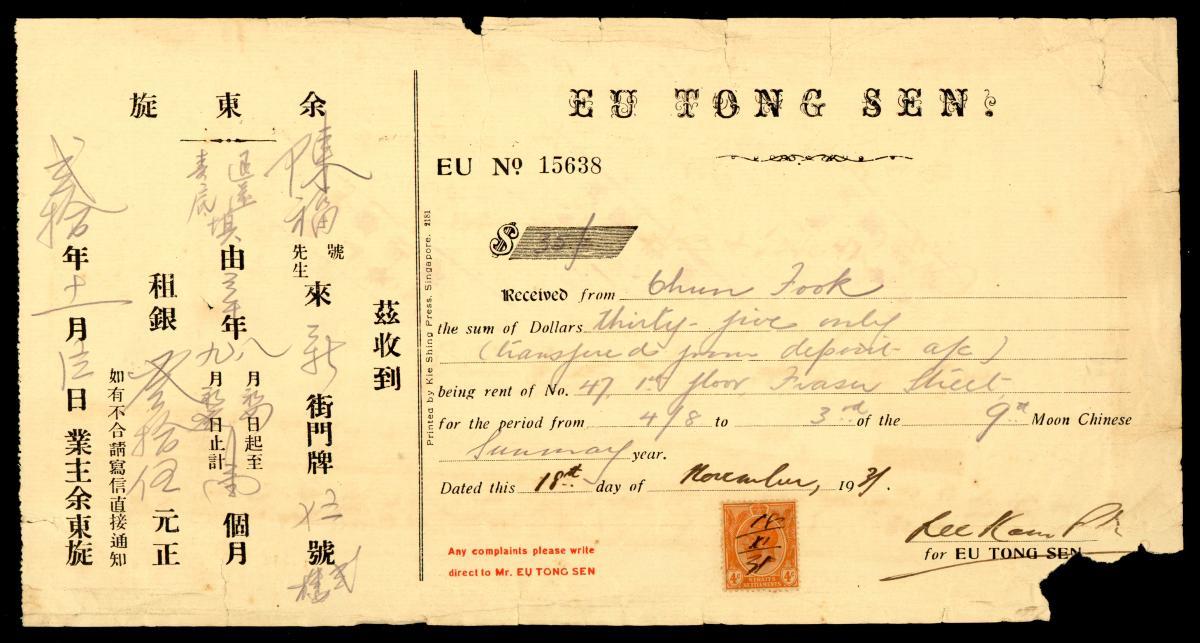 EU TONG SEN.
EU No 15638
$ 35/-
Received from Chun Fook
the sum of Dollars thirty-five only
(transfered from deposit a/c)
being rent of No. 47 1st floor, Fraser Street
for the period from 4/8 to 3rd of the 9th Moon Chinese
year.
Dated this 18th day of November, 1931.
for EU TONG SEN
Any complaints please write
direct to Mr. EU TONG SEN
18/XI/31
4c STRAITS SETTLEMENTS 4c
Printed by Kie Shing Press, Singapore. 2181
余東旋
茲收到
陳福 號先生來新街門牌 號
由 年八月 日起至
九月 日止計 個月
租銀叁拾伍元正
如有不合請寫信直接通知
貳拾年十一月 日業主余東旋